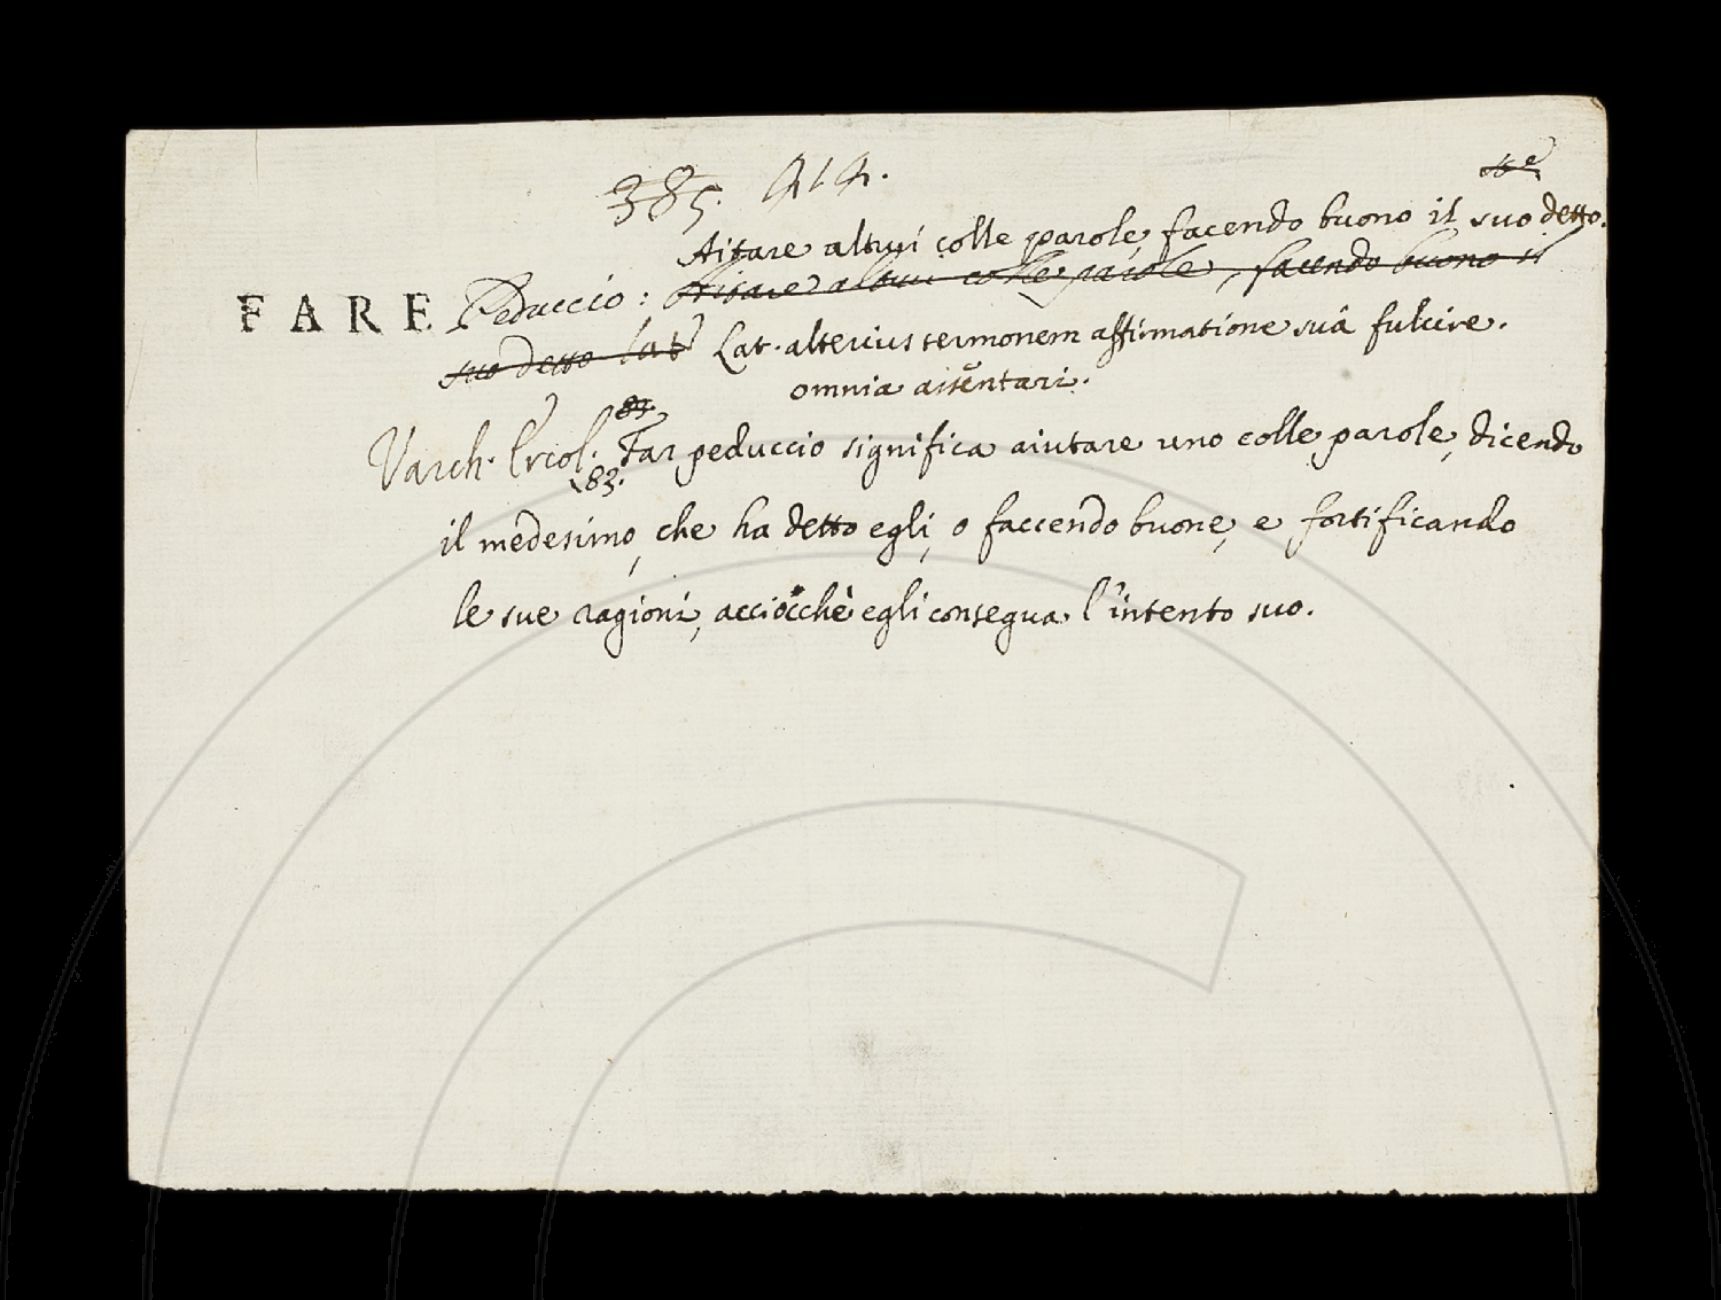 385. 414.
se
Aitare altrui colle parole, facendo buono il suo detto.
FARE Peduccio: Aitare altrui colle parole, facendo buono il
suo detto lat Lat. alterius sermonem affirmatione suâ fulcire.
omnia assentari.
83.
Varch. Ercol. Far peduccio significa aiutare uno colle parole, dicendo
83.
il medesimo, che ha detto egli, o faccendo buone, e fortificando
le sue ragioni, acciocchè egli consegua l'intento suo.